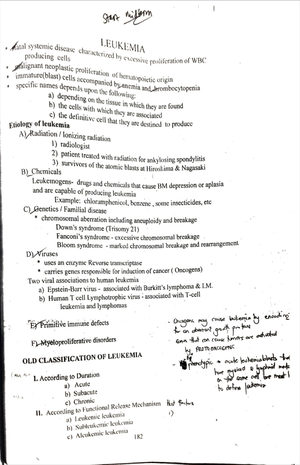 start midterm
1
LEUKEMIA
• fatal systemic disease characterized by excessive proliferation of WBC
producing cells
• malignant neoplastic proliferation of hematopoietic origin
• immature(blast) cells accompanied by anemia and thrombocytopenia
• specific names depends upon the following:
a) depending on the tissue in which they are found
b) the cells with which they are associated
c) the definitive cell that they are destined to produce
Etiology of leukemia
A) Radiation / Ionizing radiation
1) radiologist
2) patient treated with radiation for ankylosing spondylitis
3) survivors of the atomic blasts at Hiroshima & Nagasaki
B) Chemicals
Leukemogens- drugs and chemicals that cause BM depression or aplasia
and are capable of producing leukemia
Example: chloramphenicol, benzene , some insecticides, etc
C) Genetics / Familial disease
* chromosomal aberration including aneuploidy and breakage
Down's syndrome (Trisomy 21)
Fanconi's syndrome - excessive chromosomal breakage
Bloom syndrome - marked chromosome breakage and rearrangement
D) Viruses
* uses an enzyme Reverse transcriptase
* carries genes responsible for induction of cancer ( Oncogens)
Two viral associations to human leukemia
a) Epstein-Barr virus - associated with Burkitt's lymphoma & I.M.
b) Human T cell Lymphotrophic virus - associated with T-cell
leukemia and lymphomas
E) Primitive immune defects
F) Myeloproliferative disorders
- Oncogens may cause leukemia by encoding
for an aberrant growth
- can cause tumors are activated
by
OLD CLASSIFICATION OF LEUKEMIA
I. According to Duration
a) Acute
b) Subacute
c) Chronic
acute
myeloid & lymphoid
on the same cell
to define
II. According to Functional Release Mechanism
a) Leukemic leukemia
b) Subleukemic leukemia
c) Aleukemic leukemia
182